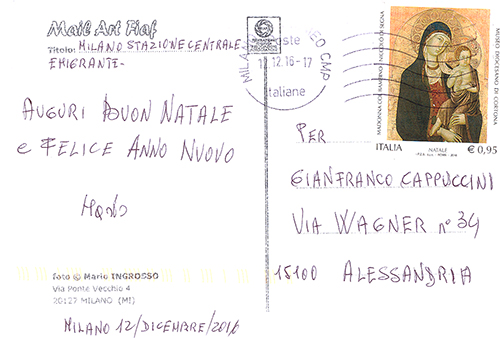 Mail Art Fiaf
Titolo: MILANO STAZIONE CENTRALE
EMIGRANTE-
AUGURI BUON NATALE
e FELICE ANNO NUOVO
foto © Mario INGROSSO
Via Ponte Vecchio 4
20127 MILANO (MI)
MILANO 12/DICEMBRE/2016
MILANO CMP
poste
12.12.16-17
italiane
MADONNA CON BAMBINO - NICCOLÒ DI SEGNA
MUSEO DIOCESANO DI CORTONA
ITALIA
NATALE
€ 0,95
PER
GIANFRANCO CAPPUCCINI
VIA WAGNER n° 34
15100 ALESSANDRIA